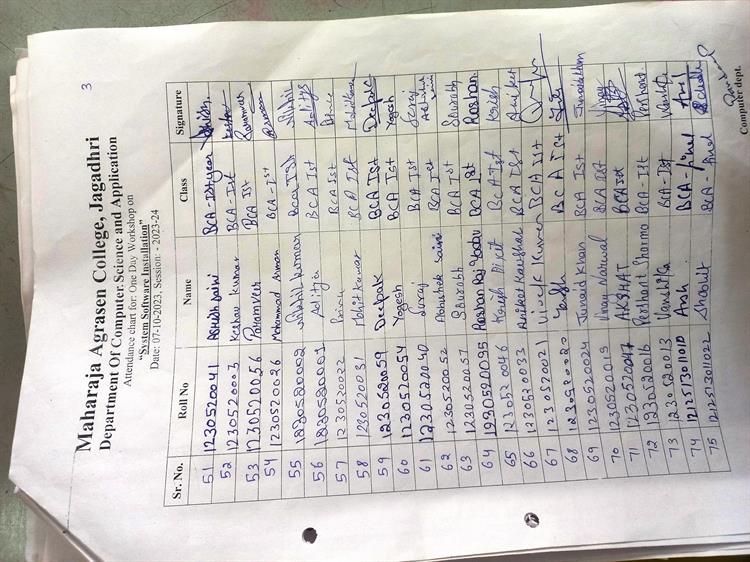 3
Maharaja Agrasen College, Jagadhri
Department Of Computer Science and Application
Attendance chart for: One Day Workshop on
"System Software Installation"
Date: 07-10-2023, Session: - 2023-24
Sr. No. Roll No Name Class Signature
51 1230520041 Ashish Saini BCA-Ist year Ashish
52 1230520003 Keshav Kumar BCA-Ist Keshav
53 1230520056 Paramveer BCA Ist Paramveer
54 1230520026 Mohammad Arman BCA-Ist
55 1230520002 Nikhil kumar BCA Ist Nikhil
56 1230520001 Aditya BCA Ist Aditya
57 1230520022 Prince BCA Ist Prince
58 1230520031 Mohit Kumar BCA Ist Mohit Kumar
59 1230520059 Deepak BCA Ist Deepak
60 1230520054 Yogesh BCA Ist Yogesh
61 1230520040 Suraj BCA Ist Suraj
62 1230520052 Abhishek Saini BCA Ist Abhishek Saini
63 1230520057 Sourabh BCA Ist Sourabh
64 1230520095 Roshan Raj Yadav BCA Ist Roshan
65 1230520046 Krish Dixit BCA Ist Krish
66 1230520033 Aniket Kaushal BCA Ist Aniket
67 1230520021 Vivek Kumar BCA Ist
68 1230520020 Yash BCA Ist
69 1230520024 Junaid Khan BCA Ist Junaidkhan
70 1230520019 Vinay Narwal BCA Ist Vinay
71 1230520047 AKSHAT BCA Ist
72 1230520016 Parthant Sharma BCA-Ist Parthant
73 1230520013 Vanshika BCA-Ist Vanshika
74 1212513011010 Ansh BCA-final Ansh
75 1212513011022 BCA-final
Computer dept.